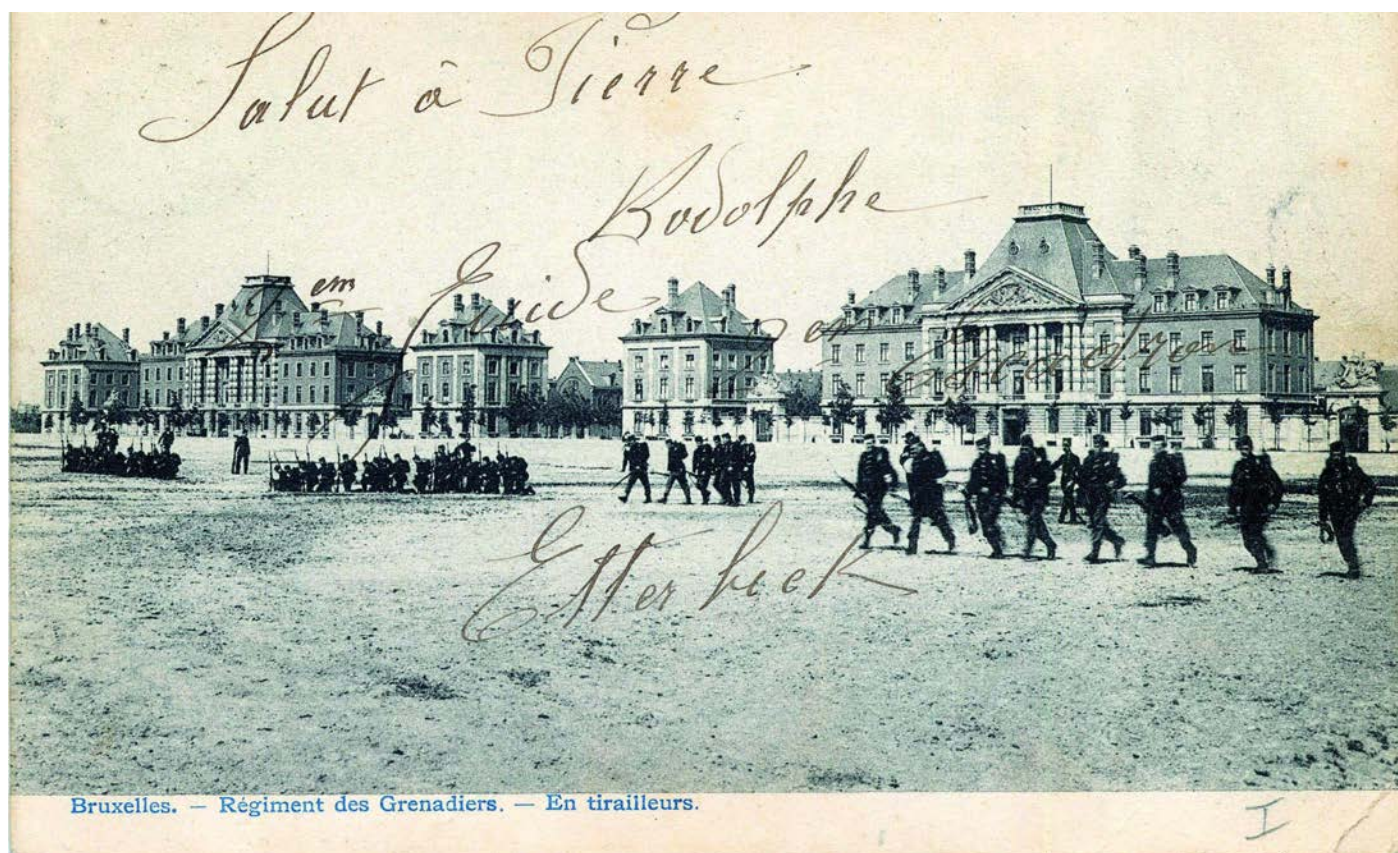 Salut à Pierre
Rodolphe
Guide Escadron
Etterbeek
Bruxelles. — Régiment des Grenadiers. — En tirailleurs.
I